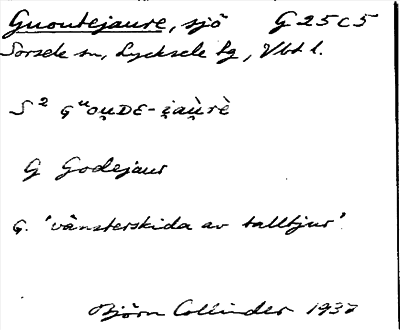 Guoutejaure, sjö G 25 C 5
Sorsele sn, Lycksele lg, Vbt l.
S² GᵘOU̯DE-i̯au̯rè
G Godejaur
G. 'vänsterskida av talltjur'.
Björn Collinder 1937